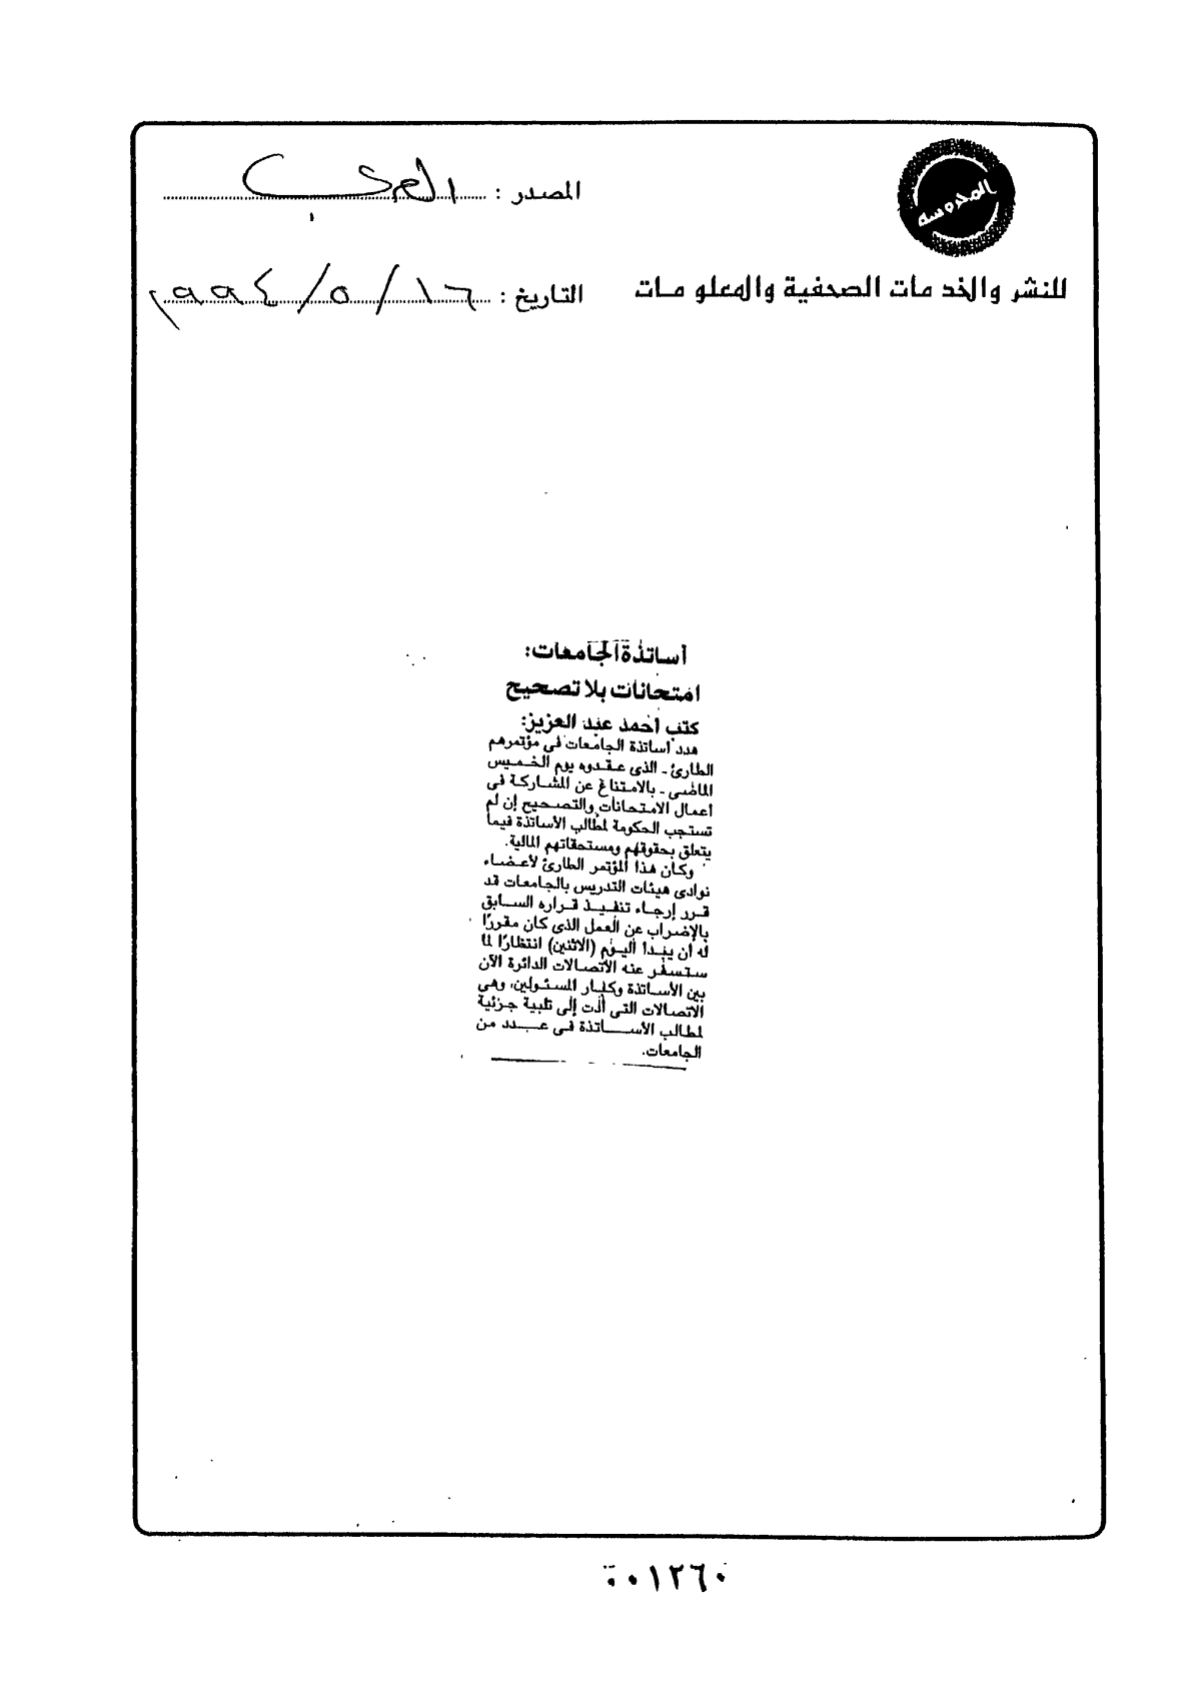 المحروسه
للنشر والخدمات الصحفية والمعلومات
المصدر : العربي
التاريخ : ١٦ / ٥ / ١٩٩٤
أساتذة الجامعات:
امتحانات بلا تصحيح
كتب أحمد عبد العزيز:
هدد أساتذة الجامعات فى مؤتمرهم
الطارئ ـ الذى عقدوه يوم الخميس
الماضى ـ بالامتناع عن المشاركة فى
أعمال الامتحانات والتصحيح إن لم
تستجب الحكومة لمطالب الأساتذة فيما
يتعلق بحقوقهم ومستحقاتهم المالية.
وكان هذا المؤتمر الطارئ لأعضاء
نوادى هيئات التدريس بالجامعات قد
قرر إرجاء تنفيذ قراره السابق
بالإضراب عن العمل الذى كان مقررًا
له أن يبدأ اليوم (الاثنين) انتظارًا لما
ستسفر عنه الاتصالات الدائرة الآن
بين الأساتذة وكبار المسئولين، وهى
الاتصالات التى أدت إلى تلبية جزئية
لمطالب الأساتذة فى عدد من
الجامعات.
٠٠١٢٦٠